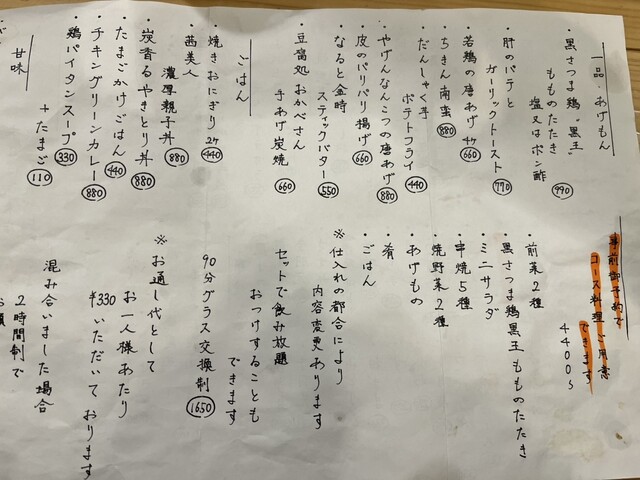 一品・あげもん
・黒さつま鶏、"黒王"
もものたたき
塩又はポン酢
990
・肝のパテと
ガーリックトースト
770
・若鶏の唐あげ 4ケ 660
・ちきん南蛮 880
・だんしゃく芋
ポテトフライ
440
・やげんなんこつの唐あげ 880
・皮のパリパリ揚げ 660
・なると金時
スティックバター
550
・豆腐処 おかべさん
手あげ炭焼
660
ごはん
・焼きおにぎり 2ケ 440
・茜美人
濃厚親子丼
880
・炭香るやきとり丼 880
・たまごかけごはん 440
・チキングリーンカレー 880
・鶏パイタンスープ 330
+たまご 110
甘味
事前御予約で
コース料理ご用意
できます
4400s
・前菜2種
・黒さつま鶏黒王もものたたき
・ミニサラダ
・串焼5種
・焼野菜2種
・あげもの
・肴
・ごはん
※仕入れの都合により
内容変更あります
セットで飲み放題
おつけすることも
できます
90分グラス交換制
1650
※お通し代として
お一人様あたり
¥330いただいております
混み合いました場合
2時間制で